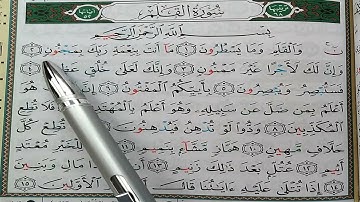 سُورَةُ الْقَلَمِ
بِسْمِ اللَّهِ الرَّحْمَٰنِ الرَّحِيمِ
نٓ وَالْقَلَمِ وَمَا يَسْطُرُونَ ﴿١﴾ مَا أَنتَ بِنِعْمَةِ رَبِّكَ بِمَجْنُونٍ ﴿٢﴾
وَإِنَّ لَكَ لَأَجْرًا غَيْرَ مَمْنُونٍ ﴿٣﴾ وَإِنَّكَ لَعَلَىٰ خُلُقٍ عَظِيمٍ ﴿٤﴾
فَسَتُبْصِرُ وَيُبْصِرُونَ ﴿٥﴾ بِأَييِّكُمُ الْمَفْتُونُ ﴿٦﴾ إِنَّ رَبَّكَ هُوَ
أَعْلَمُ بِمَن ضَلَّ عَن سَبِيلِهِ وَهُوَ أَعْلَمُ بِالْمُهْتَدِينَ ﴿٧﴾ فَلَا تُطِعِ
الْمُكَذِّبِينَ ﴿٨﴾ وَدُّوا لَوْ تُدْهِنُ فَيُدْهِنُونَ ﴿٩﴾ وَلَا تُطِعْ كُلَّ
حَلَّافٍ مَّهِينٍ ﴿١٠﴾ هَمَّازٍ مَّشَّاءٍ بِنَمِيمٍ ﴿١١﴾ مَّنَّاعٍ لِّلْخَيْرِ مُعْتَدٍ
أَثِيمٍ ﴿١٢﴾ عُتُلٍّ بَعْدَ ذَٰلِكَ زَنِيمٍ ﴿١٣﴾ أَن كَانَ ذَا مَالٍ وَبَنِينَ
﴿١٤﴾ إِذَا تُتْلَىٰ عَلَيْهِ آيَاتُنَا قَالَ أَسَاطِيرُ الْأَوَّلِينَ ﴿١٥﴾